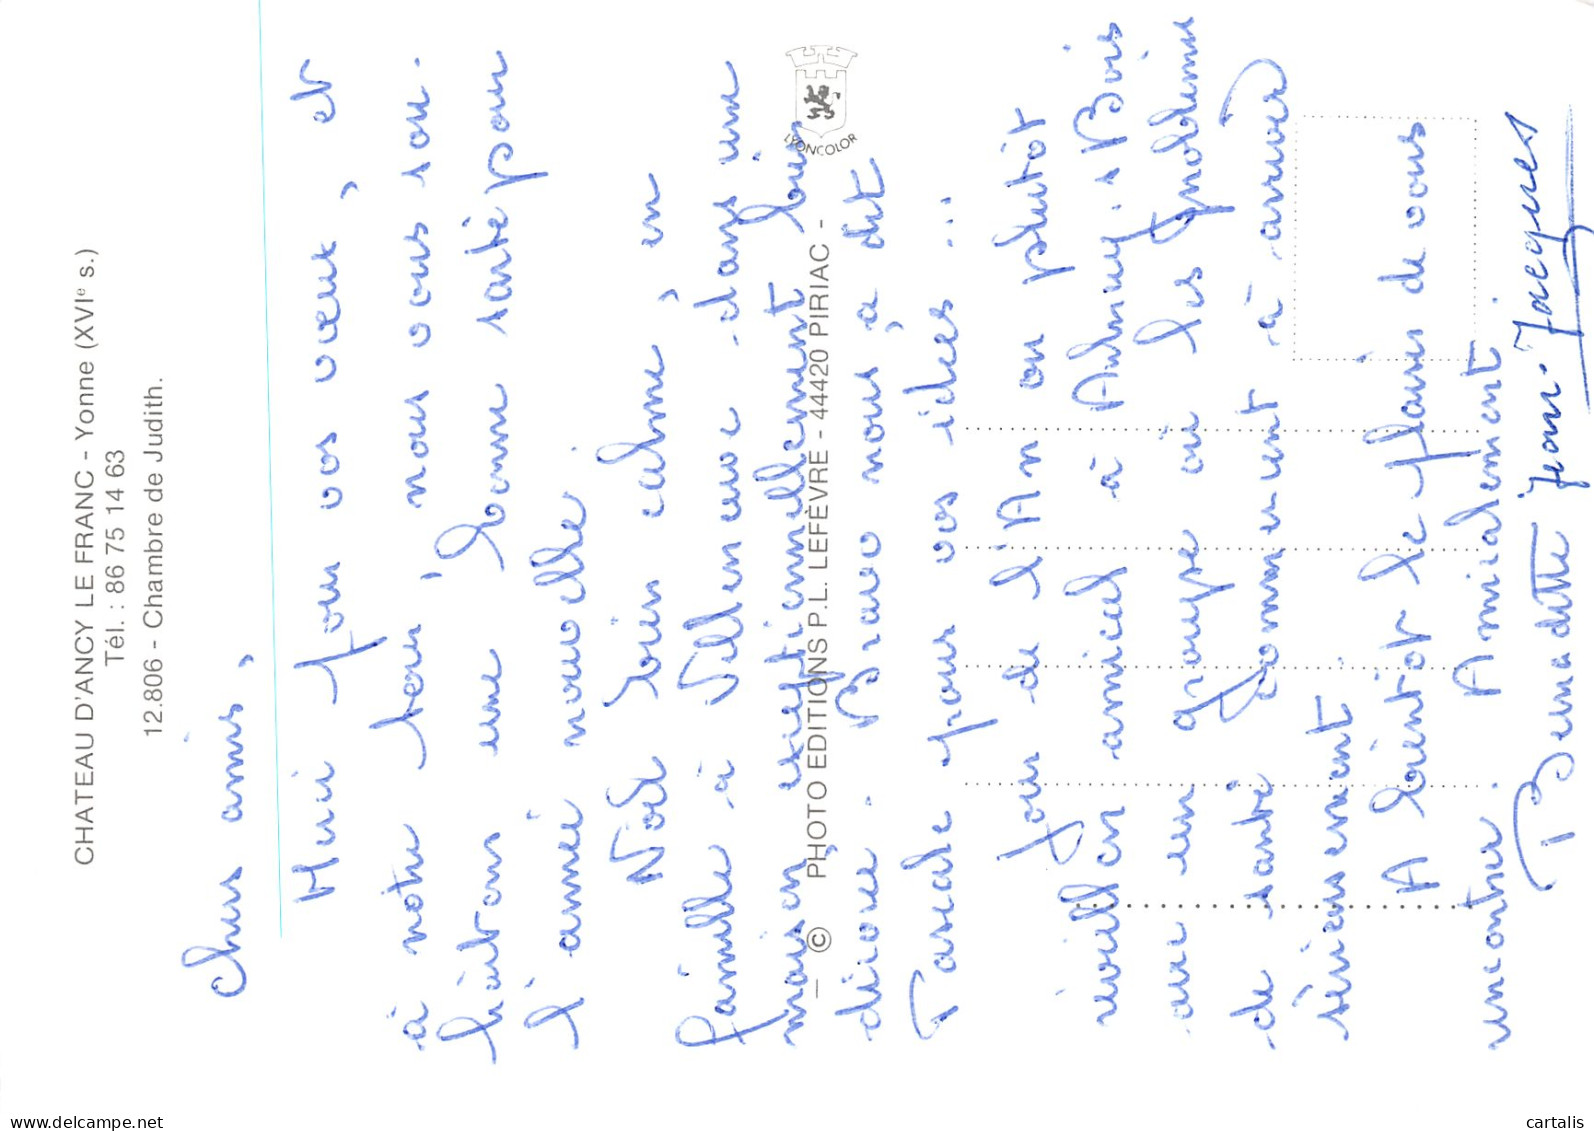 CHATEAU D'ANCY LE FRANC - Yonne (XVIe s.)
Tél. : 86 75 14 63
12.806 - Chambre de Judith.
Chers amis,
Merci pour vos vœux, et
à notre tour, nous vous sou-
haitons une bonne santé pour
l'année nouvelle.
Noël bien calme, en
famille à Villeneuve dans une
maison exceptionnellement bien
décorée. Bravo nous a dit
Pascale pour vos idées ...
Jour de l'An ou plutôt
réveillon amical à Aulnay s Bois
avec un groupe où les problèmes
de santé commencent à arriver
sérieusement.
A bientôt le plaisir de vous
rencontrer. Amicalement.
Bernadette Jean-Jacques
— © PHOTO EDITIONS P.L. LEFÈVRE - 44420 PIRIAC -
LYONCOLOR
www.delcampe.net
cartalis